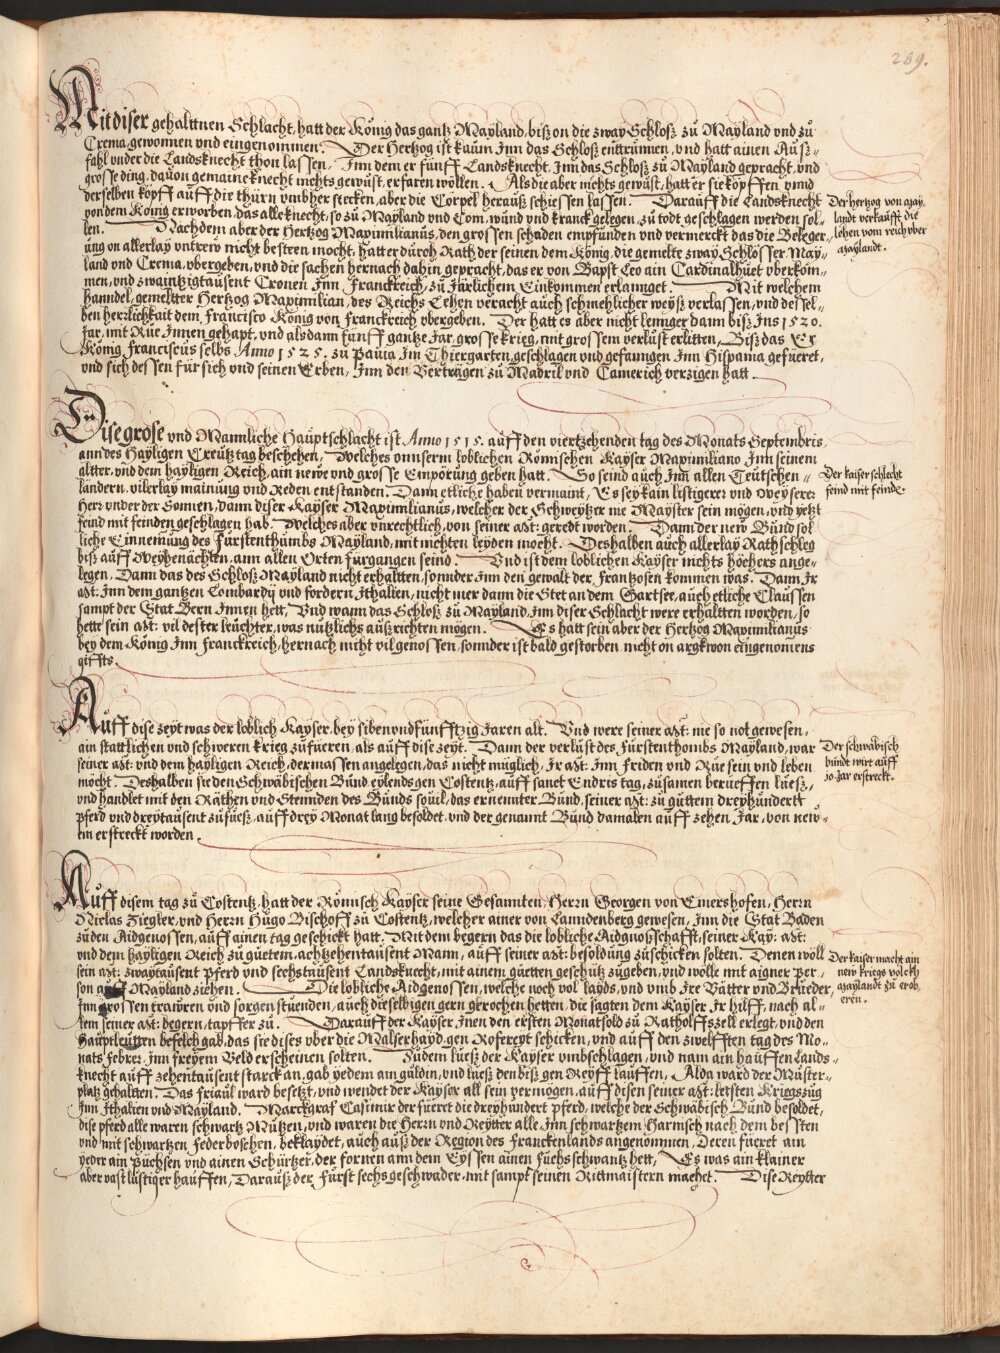 289.
Mit diser gehalttnen Schlacht, hatt der König das gantz Mayland, biß on die zway Schloß zů Mayland vnd zů
Crema, gewonnen vnd eingenommen. Der Hertzog ist kaum Jnn das Schloß enttrunnen, vnd hatt ainen Auß-
fahl vnder die Landsknecht thon lassen, Jnn dem er fünff Landsknecht, Jnn das Schloß zů Mayland gepracht, vnd
grosse ding, dauon gemaine knecht nichts gewüst, erfaren wöllen. Als die aber nichts gewüst, hatt er sie köpffen vnnd
derselben köpff auff die thürn vmbher stecken, aber die Cörpel herauß schiessen lassen. Darauff die Landsknecht
von dem König erworben, das alle knecht, so zů Mayland vnd Com, wůnd vnd kranck gelegen, zů todt geschlagen werden sol-
len. Nachdem aber der Hertzog Maximilianus, den grossen schaden empfünden vnd vermerckt das die Beleger-
ung on allerlay vntrew nicht besteen mocht, hatt er durch Rath der seinen dem König, die gemelte zway Schlösser, May-
land vnd Crema, vbergeben, vnd die sachen hernach dahin gepracht, das er von Bapst Leo ain Cardinalhůet vberkom-
men, vnd zwaintzigtausent Cronen Jnn Franckreich, zů Järlichem Einkommen erlannget. Mit welchem
hanndel, gemeltter Hertzog Maximilian, des Reichs Lehen veracht auch schmehlicher weyß verlassen, vnd dessel-
ben herzlichkait dem Francisco König von Franckreich vbergeben. Der hatt es aber nicht lennger dann biß Jns 1520.
Jar, mit Rue Jnnen gehapt, vnd alsdann fünff gantze Jar, grosse krieg, mit grossem verlust erlitten, Biß das Er
König Franciscus selbs Anno 1525. zů Pauia Jm Thiergarten, geschlagen vnd gefanngen Jnn Hispania gefüeret,
vnd sich dessen für sich vnd seinen Erben, Jnn den Verträgen zů Madril vnd Camerich verzigen hatt.
Der hertzog von may-
landt verkaufft die
lehen vom reich vber
maylandt.
Dise grose vnd Mannliche Hauptschlacht ist Anno 1515. auff den viertzehenden tag des Monats Septembris,
ann des Hayligen Creutz tag beschehen, Welches vnnserm loblichen Römischen Kayser Maximiliano Jnn seinem
altter, vnd dem hayligen Reich, ain newe vnd grosse Empörung geben hatt. So seind auch Jnn allen Teutschen
ländern, vilerlay mainung vnd Reden entstanden. Dann etliche haben vermaint, Es sey kain listigerer vnd Weyserer
Herr vnder der Sonnen, dann diser Kayser Maximilianus, welcher der Schweytzer nie Mayster sein mögen, vnd yetzt
feind mit feinden geschlagen hab. Welches aber vnrechtlich, von seiner Mt: geredt worden. Dann der new Bund sol
liche Einnemung des Fürstenthůmbs Mayland, mit nichten leyden mocht. Deshalben auch allerlay Rathschleg
biß auff Weyhenächten, ann allen Orten fürgangen seind. Vnd ist dem loblichen Kayser nichts höchers ange-
legen, Dann das des Schloß Mayland nicht erhaltten, sonnder Jnn den gewalt der Frantzosen kommen was. Dann Jr
Mt: Jnn dem gantzen Lombardy vnd fordern Jthalien, nicht mer dann die Stet an dem Gartsee, auch etliche Claussen
sampt der Stat Bern Jnnen hett, Vnd wann das Schloß zů Mayland, Jnn diser Schlacht were erhaltten worden, so
hette sein Mt: vil dester leüchter, was nutzlichs außrichten mögen. Es hatt sein aber der Hertzog Maximilianus
bey dem König Jnn Franckreich, hernach nicht vil genossen, sonnder ist bald gestorben nicht on argkwon eingenomens
giffts.
Der kaiser schlecht
feind mit feinde
Auff dise zeyt was der loblich Kayser, bey siben vnd fünfftzig Jaren alt. Vnd were seiner Mt: nie so not gewesen,
ain stattlichen vnd schweren krieg zůfüeren, als auff dise zeyt. Dann der verlust des Fürstenthombs Mayland, war
seiner Mt: vnd dem hayligen Reich, dermassen angelegen, das nicht müglich, Jr Mt: Jnn friden vnd Rue sein vnd leben
möcht. Deshalben sie den Schwäbischen Bund eylends gen Costentz, auff sanct Endris tag, zůsamen berueffen lueß,
vnd handlet mit den Räthen vnd Stennden des Bunds souil, das ernennter Bund, seiner Mt: zů guttem dreyhundert
pferd vnd dreytausent zůfueß, auff drey Monat lang besoldet, vnd der genannt Bund damalen auff zehen Jar, von new-
em erstreckt worden.
Der schwäbisch
bundt wirt auff
10. Jar erstreckt.
Auff disem tag zů Costentz, hatt der Römisch Kayser seine Gesannten, Herrn Georgen von Emershofen, Herrn
Niclas Ziegler, vnd Herrn Hugo Bischoff zů Costentz, welcher ainer von Lanndenberg gewesen, Jnn die Stat Baden
zů den Aidgnossen, auff ainen tag geschickt hatt, Mit dem begern das die lobliche Aidgnoßschafft, seiner Kay: Mt:
vnd dem hayligen Reich zů guetem, achtzehentausent Mann, auff seiner Mt: besoldung zůschicken solten. Denen wöll
sein Mt: zwaytausent pferd vnd sechstausent Landsknecht, mit ainem gůetten geschütz zůgeben, vnd wölle mit aigner per-
son auff Mayland ziehen. Die lobliche Aidgenossen, welche noch vol layds, vnd vmb Jre Vätter vnd Brüeder,
Jnn grossen trawren vnd sorgen stüenden, auch dieselbigen gern gerochen hetten, die sagten dem Kayser Jr hilff, nach al-
lem seiner Mt: begern, tapffer zů. Darauff der Kayser Jnen den ersten Monatsold zů Ratholffszell erlegt, vnd den
Hauptleütten befelch gab, das sie dises vber die Malserhayd gen Rofereyt schicken, vnd auff den zwelfften tag des Mo-
nats Febrer, Jnn freyem Veld erscheinen solten. Zudem lueß der Kayser vmbschlagen, vnd nam ain hauffen Lands-
knecht auff zehentausent starck an, gab yedem ain guldin, vnd lueß den biß gen Reyff lauffen, Alda ward der Muster-
platz gehaltten. Das friaul ward besetzt, vnd wendet der Kayser all sein vermögen, auff disen seiner Mt: letsten Kriegszug
Jnn Jthalien vnd Mayland. Marckgraf Casimir der fueret die dreyhundert pferd, welche der Schwäbisch Bund besoldet,
dise pferd alle waren schwartz Mutzen, vnd waren die Herrn vnd Reytter alle Jnn schwartzem Harnisch nach dem bessten
vnd mit schwartzen Federboschen, beklaydet, auch auß der Region des Franckenlands angenommen, Deren fueret ain
yeder ain Büchsen vnd ainen Schürtzer, der fornen ann dem Eyssen ainen Füchsschwantz hett, Es was ain klainer
aber vast lustiger hauffen, Darauß der Fürst sechs geschwader, mit sampt seinen Rittmaistern machet. Dise Reytter
Der kaiser macht ain
new kriegs volckh
maylandt zu erob-
eren.